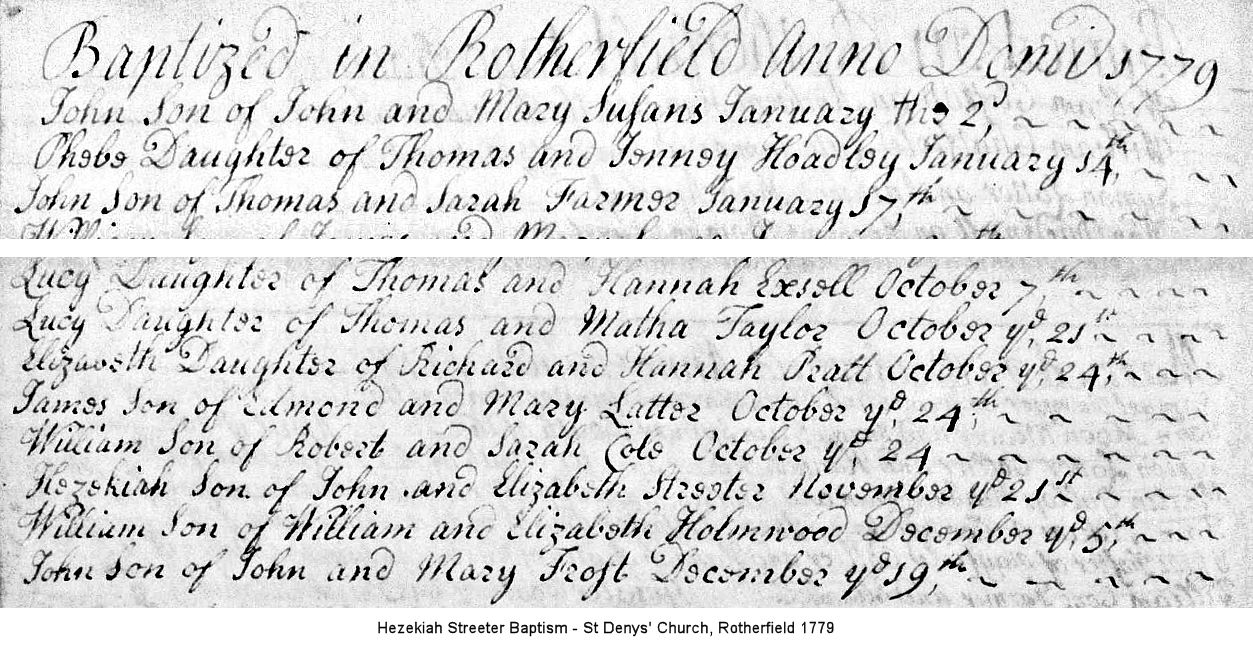 Baptized in Rotherfield Anno Domi 1779
John Son of John and Mary Susans January the 2d,
Phebe Daughter of Thomas and Jenney Hoadley January 14th,
John Son of Thomas and Sarah Farmer January 17,th
William Son of James and Mary
Lucy Daughter of Thomas and Hannah Exsell October 7,th
Lucy Daughter of Thomas and Matha Taylor October ye, 21st
Elizabeth Daughter of Richard and Hannah Pratt October ye, 24,th
James Son of Edmond and Mary Latter October ye, 24,th
William Son of Robert and Sarah Cole October ye, 24
Hezekiah Son of John and Elizabeth Streeter November ye 21st
William Son of William and Elizabeth Holmwood December ye, 5,th
John Son of John and Mary Frost December ye 19,th
Hezekiah Streeter Baptism - St Denys' Church, Rotherfield 1779